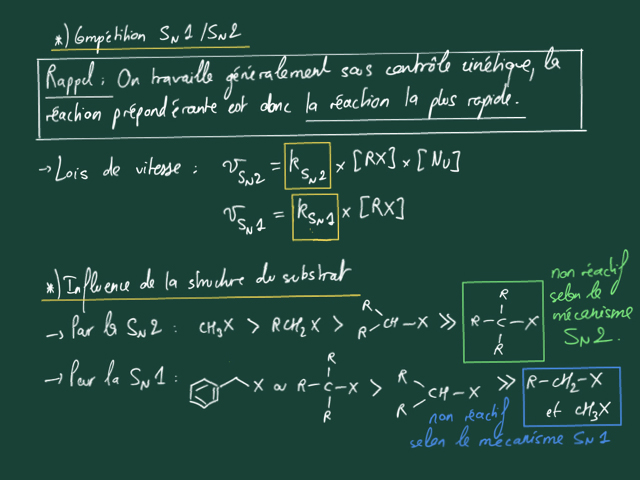 *) Compétition SN1/SN2
Rappel : On travaille généralement sous contrôle cinétique, la
réaction prépondérante est donc la réaction la plus rapide.
→ Lois de vitesse : v_SN2 = k_SN2 × [RX] × [Nu]
v_SN1 = k_SN1 × [RX]
*) Influence de la structure du substrat
non réactif
selon le
mécanisme
SN2.
→ Par la SN2 : CH3X > RCH2X > R R CH-X >> R R-C-X R
→ Pour la SN1 : X ou R R-C-X R > R R CH-X >> R-CH2-X
et CH3X
non réactif
selon le mécanisme SN1